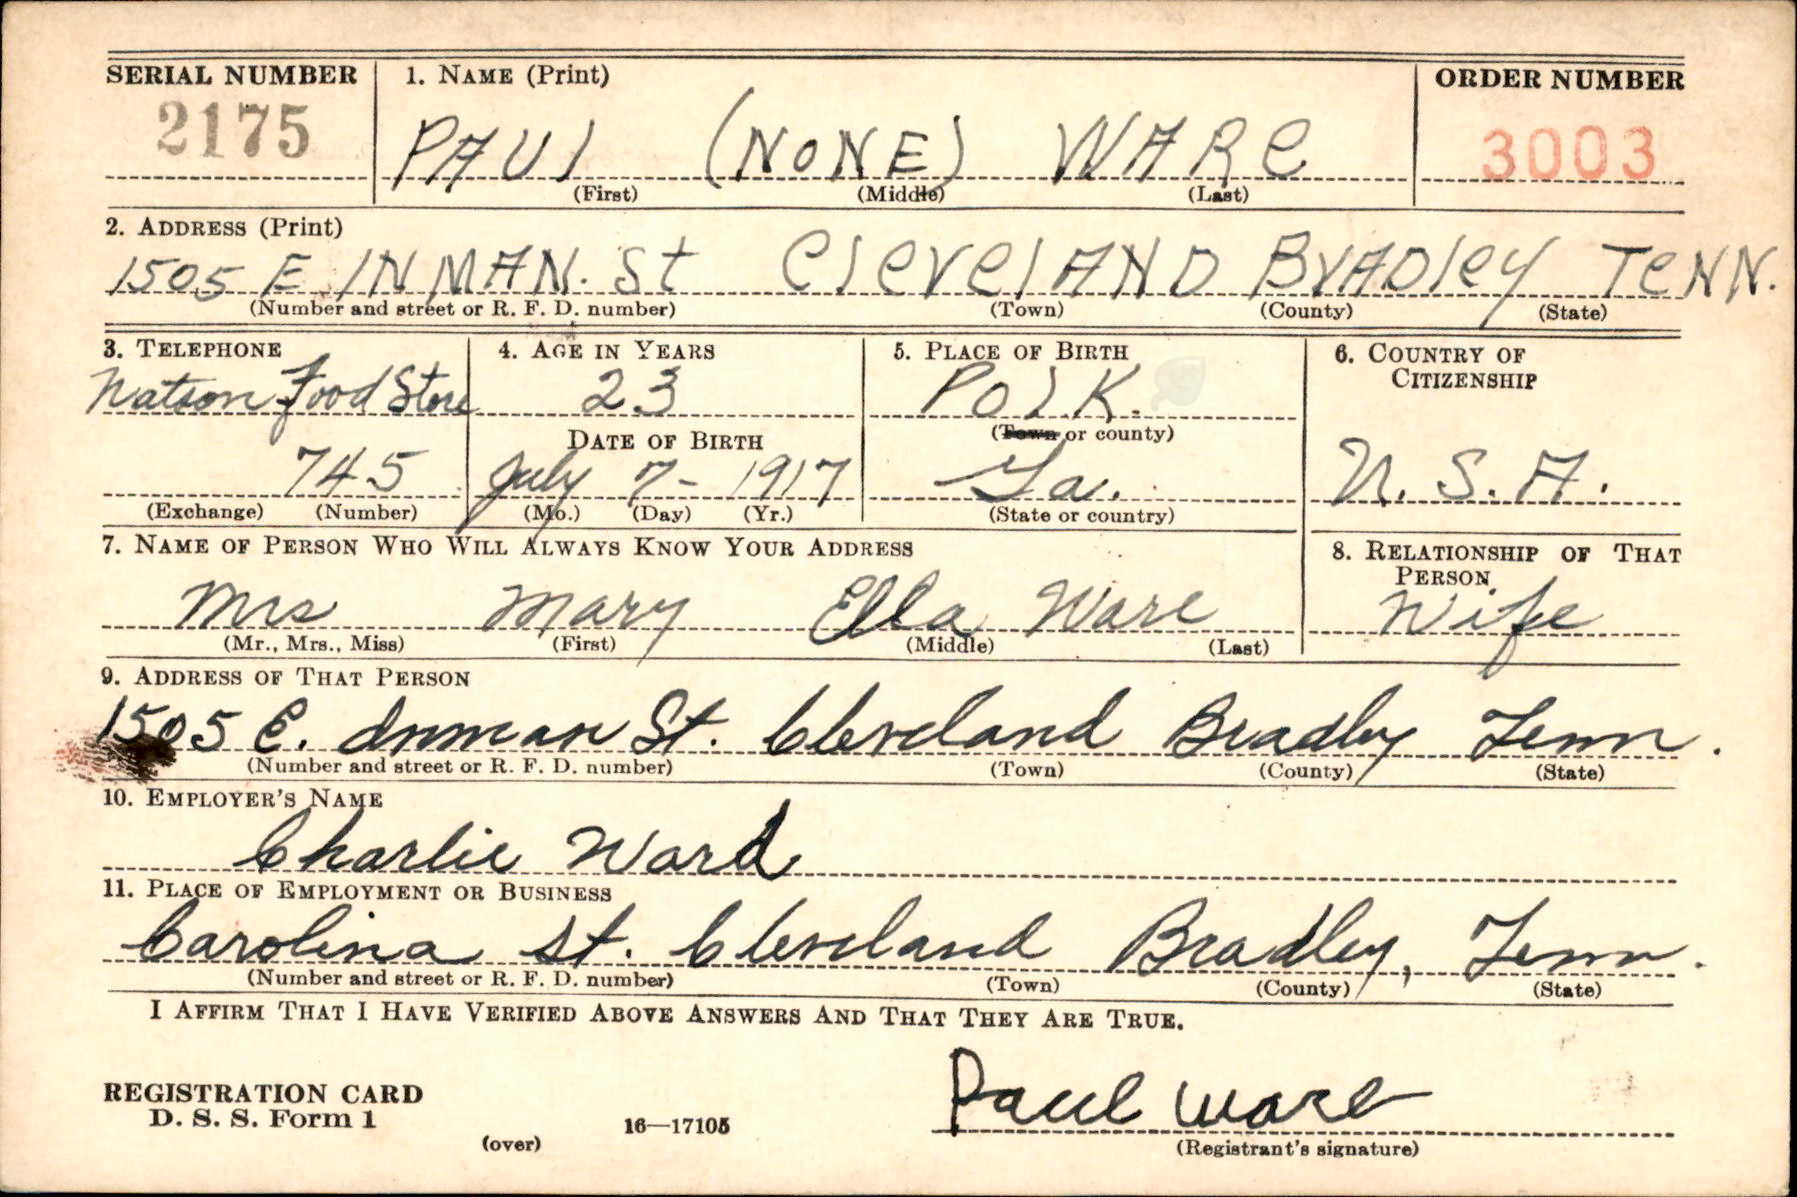 SERIAL NUMBER 1. NAME (Print) ORDER NUMBER
2175 PAUl (NONE) WARe 3003
(First) (Middle) (Last)
2. ADDRESS (Print)
1505 E INMAN. St ClevelAND BrADley TeNN.
(Number and street or R. F. D. number) (Town) (County) (State)
3. TELEPHONE 4. AGE IN YEARS 5. PLACE OF BIRTH 6. COUNTRY OF CITIZENSHIP
Watson Food Store 23 Polk.
DATE OF BIRTH (Town or county)
745 July 7- 1917 Ga. U. S. A.
(Exchange) (Number) (Mo.) (Day) (Yr.) (State or country)
7. NAME OF PERSON WHO WILL ALWAYS KNOW YOUR ADDRESS 8. RELATIONSHIP OF THAT PERSON
Mrs Mary Ella Ware Wife
(Mr., Mrs., Miss) (First) (Middle) (Last)
9. ADDRESS OF THAT PERSON
1505 E. Inman St. Cleveland Bradley Tenn.
(Number and street or R. F. D. number) (Town) (County) (State)
10. EMPLOYER'S NAME
Charlie Ward
11. PLACE OF EMPLOYMENT OR BUSINESS
Carolina St. Cleveland Bradley, Tenn.
(Number and street or R. F. D. number) (Town) (County) (State)
I AFFIRM THAT I HAVE VERIFIED ABOVE ANSWERS AND THAT THEY ARE TRUE.
Paul Ware
REGISTRATION CARD
D. S. S. Form 1 (over) 16—17105 (Registrant's signature)